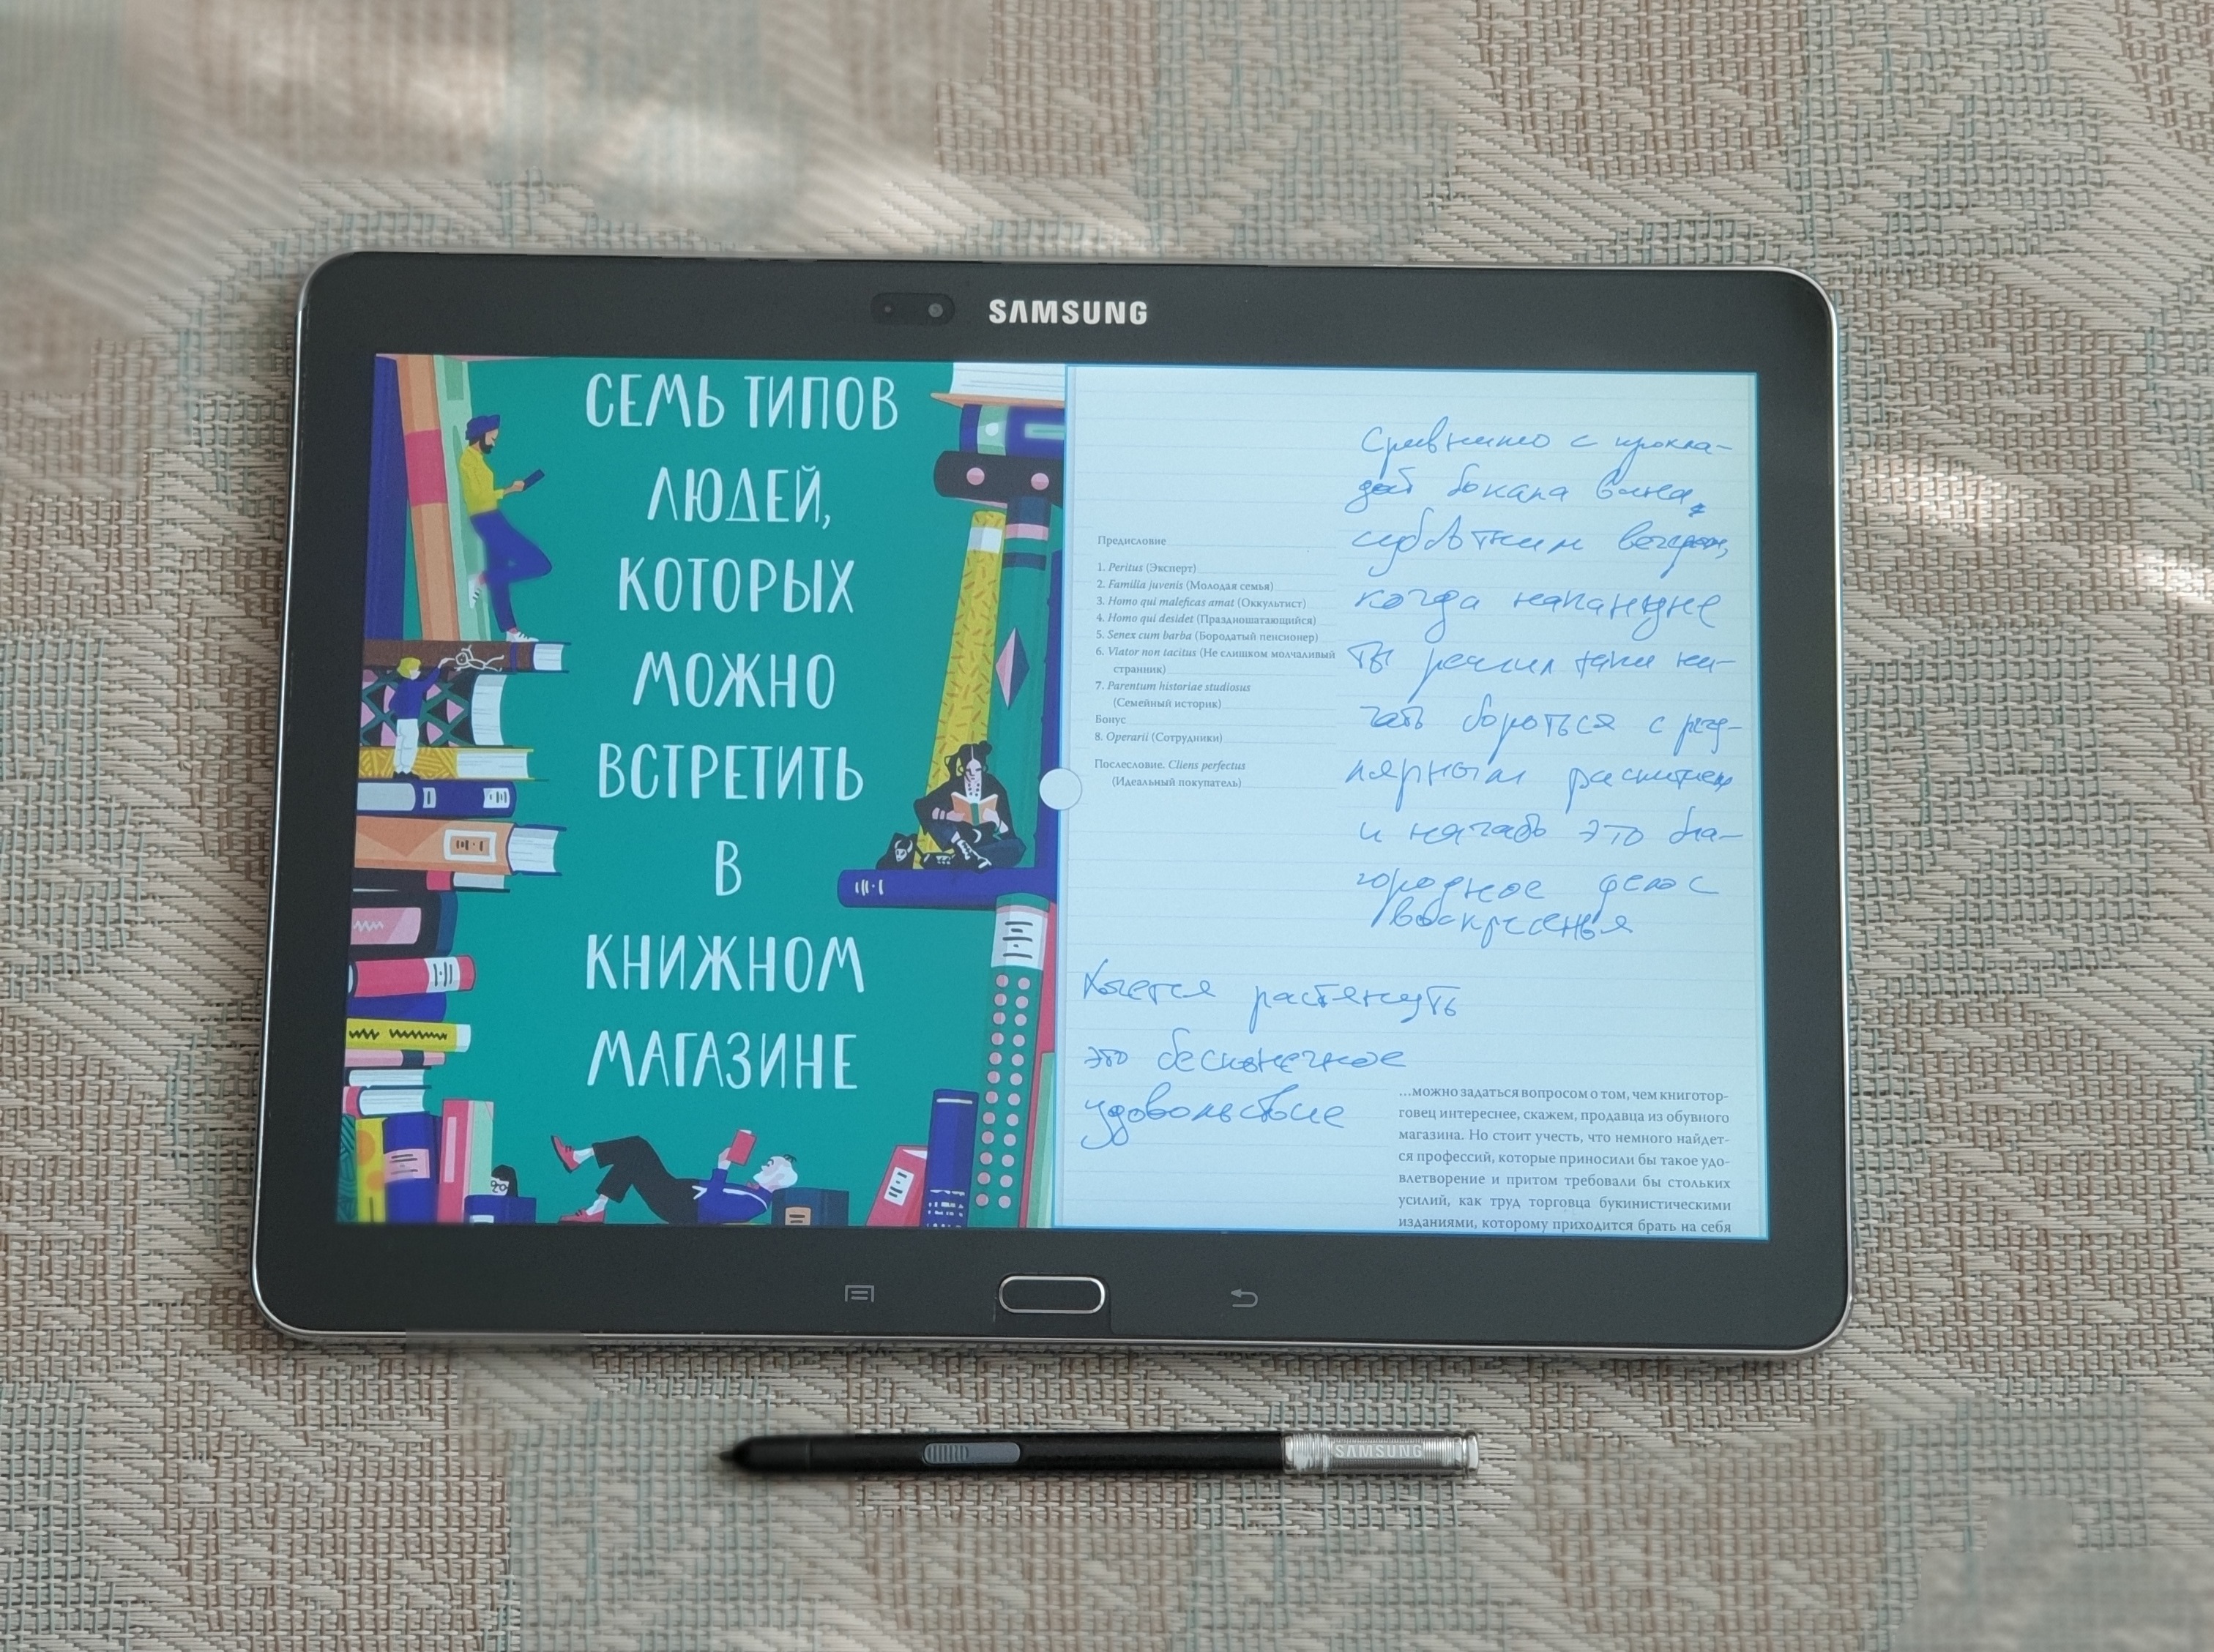 SAMSUNG
СЕМЬ ТИПОВ
ЛЮДЕЙ,
КОТОРЫХ
МОЖНО
ВСТРЕТИТЬ
В
КНИЖНОМ
МАГАЗИНЕ
Предисловие
1. Peritus (Эксперт)
2. Familia juvenis (Молодая семья)
3. Homo qui maleficas amat (Оккультист)
4. Homo qui desidet (Праздношатающийся)
5. Senex cum barba (Бородатый пенсионер)
6. Viator non tacitus (Не слишком молчаливый
странник)
7. Parentum historiae studiosus
(Семейный историк)
Бонус
8. Operarii (Сотрудники)
Послесловие. Cliens perfectus
(Идеальный покупатель)
Сравнимо с прохла-
дой бокала вина,
субботним вечером,
когда накануне
ты решил таки на-
чать бороться с регу-
лярным распитием
и начать это бла-
городное дело с
воскресенья
Хочется растянуть
это бесконечное
удовольствие
...можно задаться вопросом о том, чем книготор-
говец интереснее, скажем, продавца из обувного
магазина. Но стоит учесть, что немного найдет-
ся профессий, которые приносили бы такое удо-
влетворение и притом требовали бы стольких
усилий, как труд торговца букинистическими
изданиями, которому приходится брать на себя
SAMSUNG